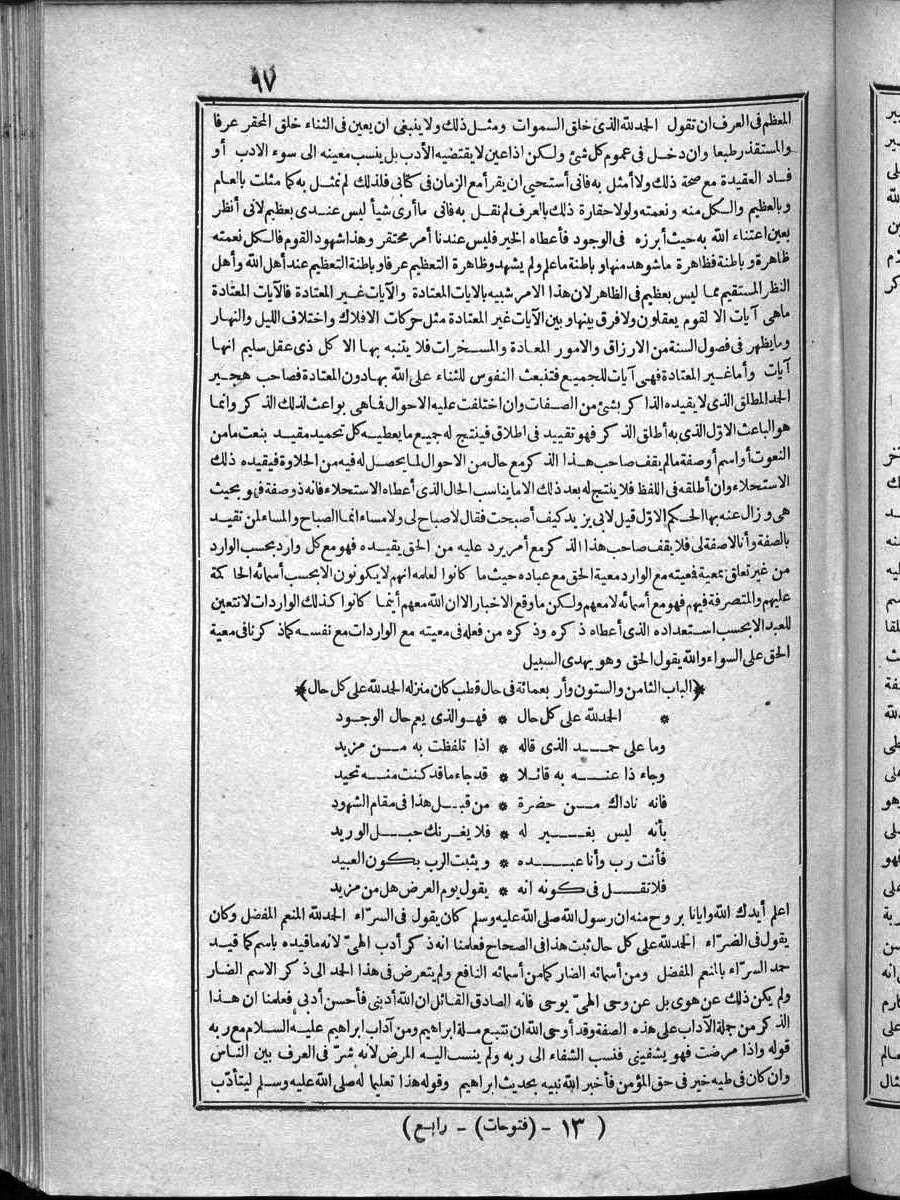 ٩٧
المعظم فى العرف ان تقول الحمد لله الذى خلق السموات ومثل ذلك ولا ينبغى ان يعين فى الثناء خلق المحقر عرفا
والمستقذر طبعا وان دخل فى عموم كل شئ ولكن اذا عين لا يقتضيه الأدب بل ينسب معينه الى سوء الادب أو
فساد العقيدة مع صحة ذلك ولا أمثل به فانى أستحيى ان يقرأ مع الزمان فى كتابى فلذلك لم نمثل به كما مثلت بالعام
وبالعظيم والكل منه ونعمته ولولا حقارة ذلك بالعرف لم نقل به فانى ما أرى شيأ ليس عندى بعظيم لانى أنظر
بعين اعتناء الله به حيث أبرزه فى الوجود فأعطاه الخير فليس عندنا أمر محتقر وهذا شهود القوم فالكل نعمته
ظاهرة وباطنة فظاهرة ما شوهد منها وباطنة ما علم ولم يشهد وظاهرة التعظيم عرفا وباطنة التعظيم عند أهل الله وأهل
النظر المستقيم مما ليس بعظيم فى الظاهر لان هذا الامر شبيه بالايات المعتادة والآيات غير المعتادة فالآيات المعتادة
ماهى آيات الا لقوم يعقلون ولا فرق بينها وبين الآيات غير المعتادة مثل حركات الافلاك واختلاف الليل والنهار
وما يظهر فى فصول السنة من الارزاق والامور المعادة والمسخرات فلا يتنبه بها الا كل ذى عقل سليم انها
آيات وأما غير المعتادة فهى آيات للجميع فتنبعث النفوس للثناء على الله بها دون المعتادة فصاحب هجير
الحمد المطلق الذى لا يقيده الذاكر بشئ من الصفات وان اختلفت عليه الاحوال فماهى بواعث لذلك الذكر وانما
هو الباعث الاوّل الذى به أطلق الذكر فهو تقييد فى اطلاق فينتج له جميع ما يعطيه كل تحميد مقيد بنعت ما من
النعوت أو اسم أو صفة ما لم يقف صاحب هذا الذكر مع حال من الاحوال لما يحصل له فيه من الحلاوة فيقيده ذلك
الاستحلاء وان أطلقه فى اللفظ فلا ينتج له بعد ذلك الا ما يناسب الحال الذى أعطاه الاستحلاء فانه ذو صفة فهو بحيث
هى وزال عنه بها الحكم الاوّل قيل لابى يزيد كيف أصبحت فقال لا صباح لى ولا مساء انما الصباح والمساء لمن تقيد
بالصفة وأنا لا صفة لى فلا يقف صاحب هذا الذكر مع أمر يرد عليه من الحق يقيده فهو مع كل وارد بحسب الوارد
من غير تعلق بمعية فمعيته مع الوارد معية الحق مع عباده حيث ما كانوا لعلمه انهم لا يكونون الا بحسب أسمائه الحاكمة
عليهم والمتصرفة فيهم فهو مع أسمائه لا معهم ولكن ما وقع الاخبار الا ان الله معهم أينما كانوا كذلك الواردات لا تتعين
للعبد الا بحسب استعداده الذى أعطاه ذكره وذكره من فعله فى معيته مع الواردات مع نفسه كما ذكرنا فى معية
الحق على السواء والله يقول الحق وهو يهدى السبيل
﴿الباب الثامن والستون وأربعمائة فى حال قطب كان منزله الحمد لله على كل حال﴾
* الحمد لله على كل حال * فهو الذى يعم حال الوجود
وما على حمد الذى قاله * اذا تلفظت به من مزيد
وجاء ذا عنه به قائلا * قد جاء ما قد كنت منه تحيد
فانه ناداك من حضرة * من قبل هذا فى مقام الشهود
بأنه ليس بغير له * فلا يغرنك حبل الوريد
فأنت رب وأنا عبده * ويثبت الرب بكون العبيد
فلا تقل فى كونه انه * يقول يوم العرض هل من مزيد
اعلم أيدك الله وايانا بروح منه ان رسول الله صلى الله عليه وسلم كان يقول فى السرّاء الحمد لله المنعم المفضل وكان
يقول فى الضرّاء الحمد لله على كل حال ثبت هذا فى الصحاح فعلمنا انه ذكر أدب الهىّ لانه ما قيده باسم كما قيد
حمد السرّاء بالمنعم المفضل ومن أسمائه الضار كما من أسمائه النافع ولم يتعرض فى هذا الحمد الى ذكر الاسم الضار
ولم يكن ذلك عن هوى بل عن وحى الهىّ يوحى فانه الصادق القائل ان الله أدبنى فأحسن أدبى فعلمنا ان هذا
الذكر من جملة الآداب على هذه الصفة وقد أوحى الله ان نتبع ملة ابراهيم ومن آداب ابراهيم عليه السلام مع ربه
قوله واذا مرضت فهو يشفينى فنسب الشفاء الى ربه ولم ينسب اليه المرض لانه شرّ فى العرف بين الناس
وان كان فى طيه خير فى حق المؤمن فأخبر الله نبيه بحديث ابراهيم وقوله هذا تعليما له صلى الله عليه وسلم ليتأدّب
( ١٣ - (فتوحات) - رابع )